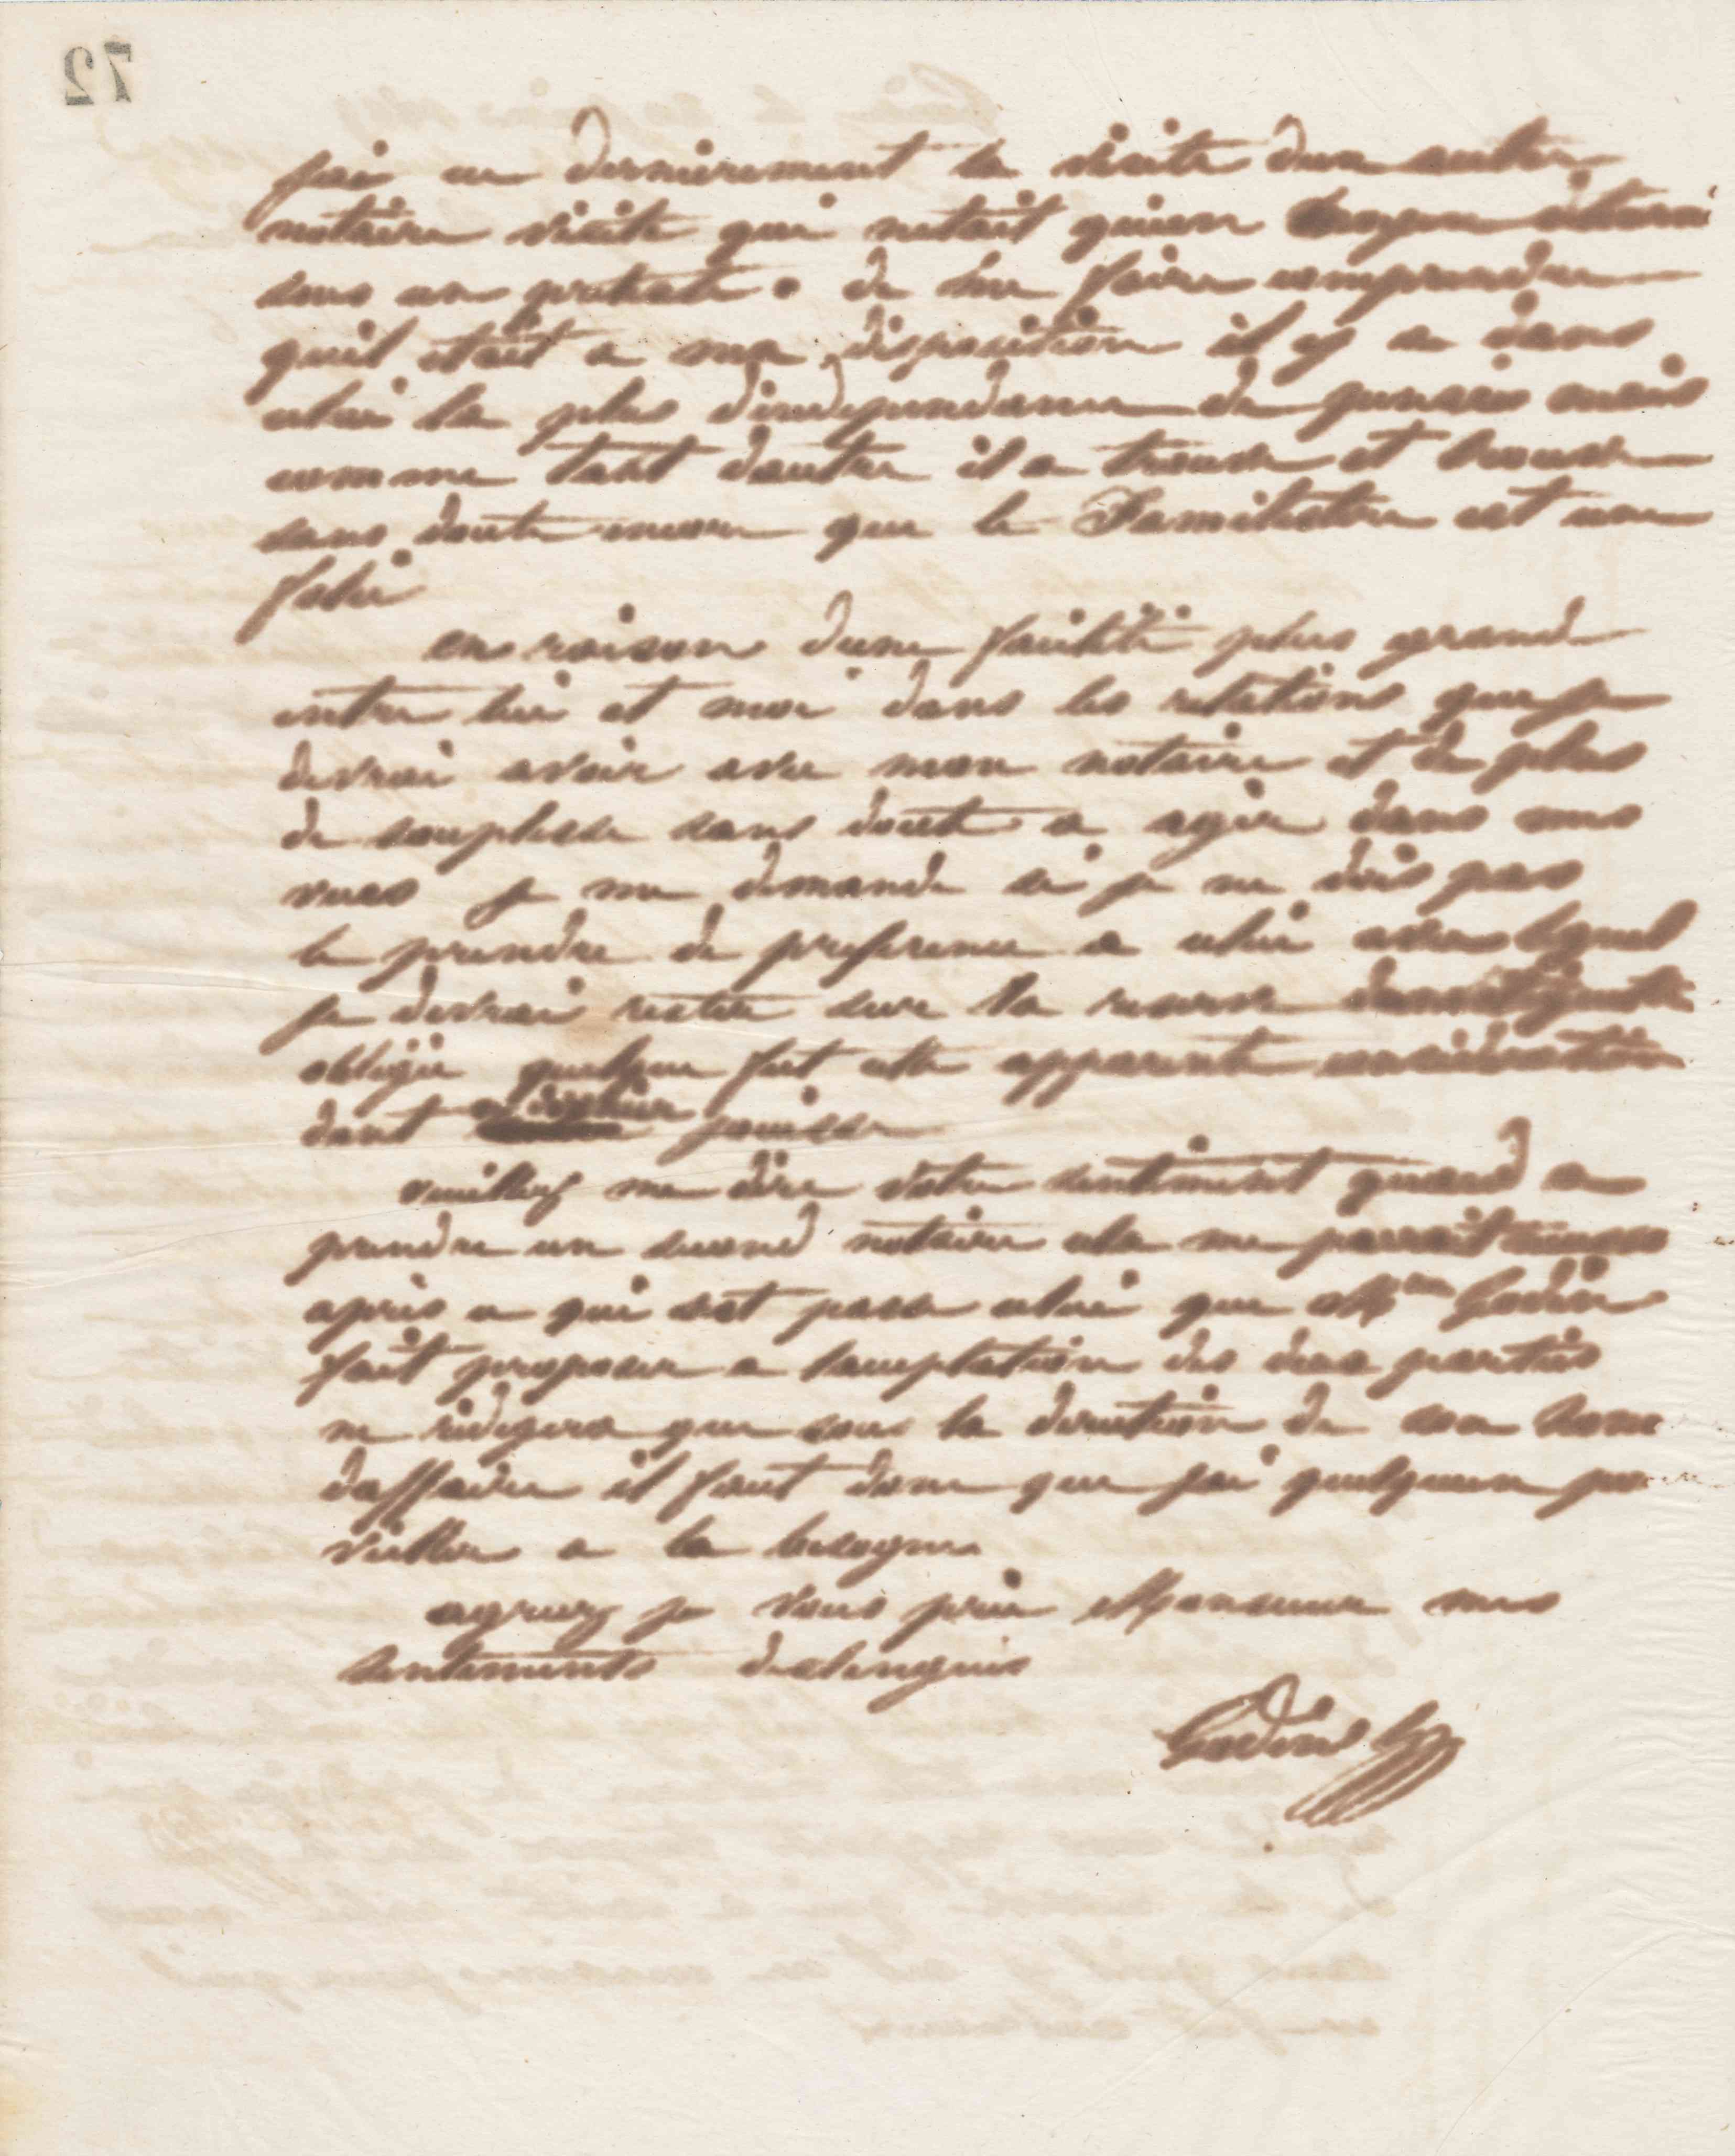 72
jai eu dernierement la visite dun autre
notaire visite qui netait quun moyen
sous un pretexte de me faire comprendre
quil etait a ma disposition il y a dans
celui la plus dindependance de pensées mais
comme tant dautre il a trouvé et trouve
sans doute encore que le Familistere est une
folie
en raison dune facilité plus grande
entre lui et moi dans les relations que je
devrai avoir avec mon notaire et de plus
de souplesse sans doute a agir dans mes
vues je me demande si je ne dois pas
le prendre de preference a celui avec lequel
je devrai rester sur la reserve
obligée quelque fut cette apparente consideration
dont ce dernier jouisse
veuillez me dire votre sentiment quand a
prendre un second notaire cela me parrait
apres ce qui sest passé celui que Mme Godin
fait proposer a lacceptation des deux parties
ne redigera que sous la direction de son home
daffaire il faut donc que jai quelquun pour
veiller a la besogne
agreez je vous prie Monsieur mes
sentiments destingués
Godin